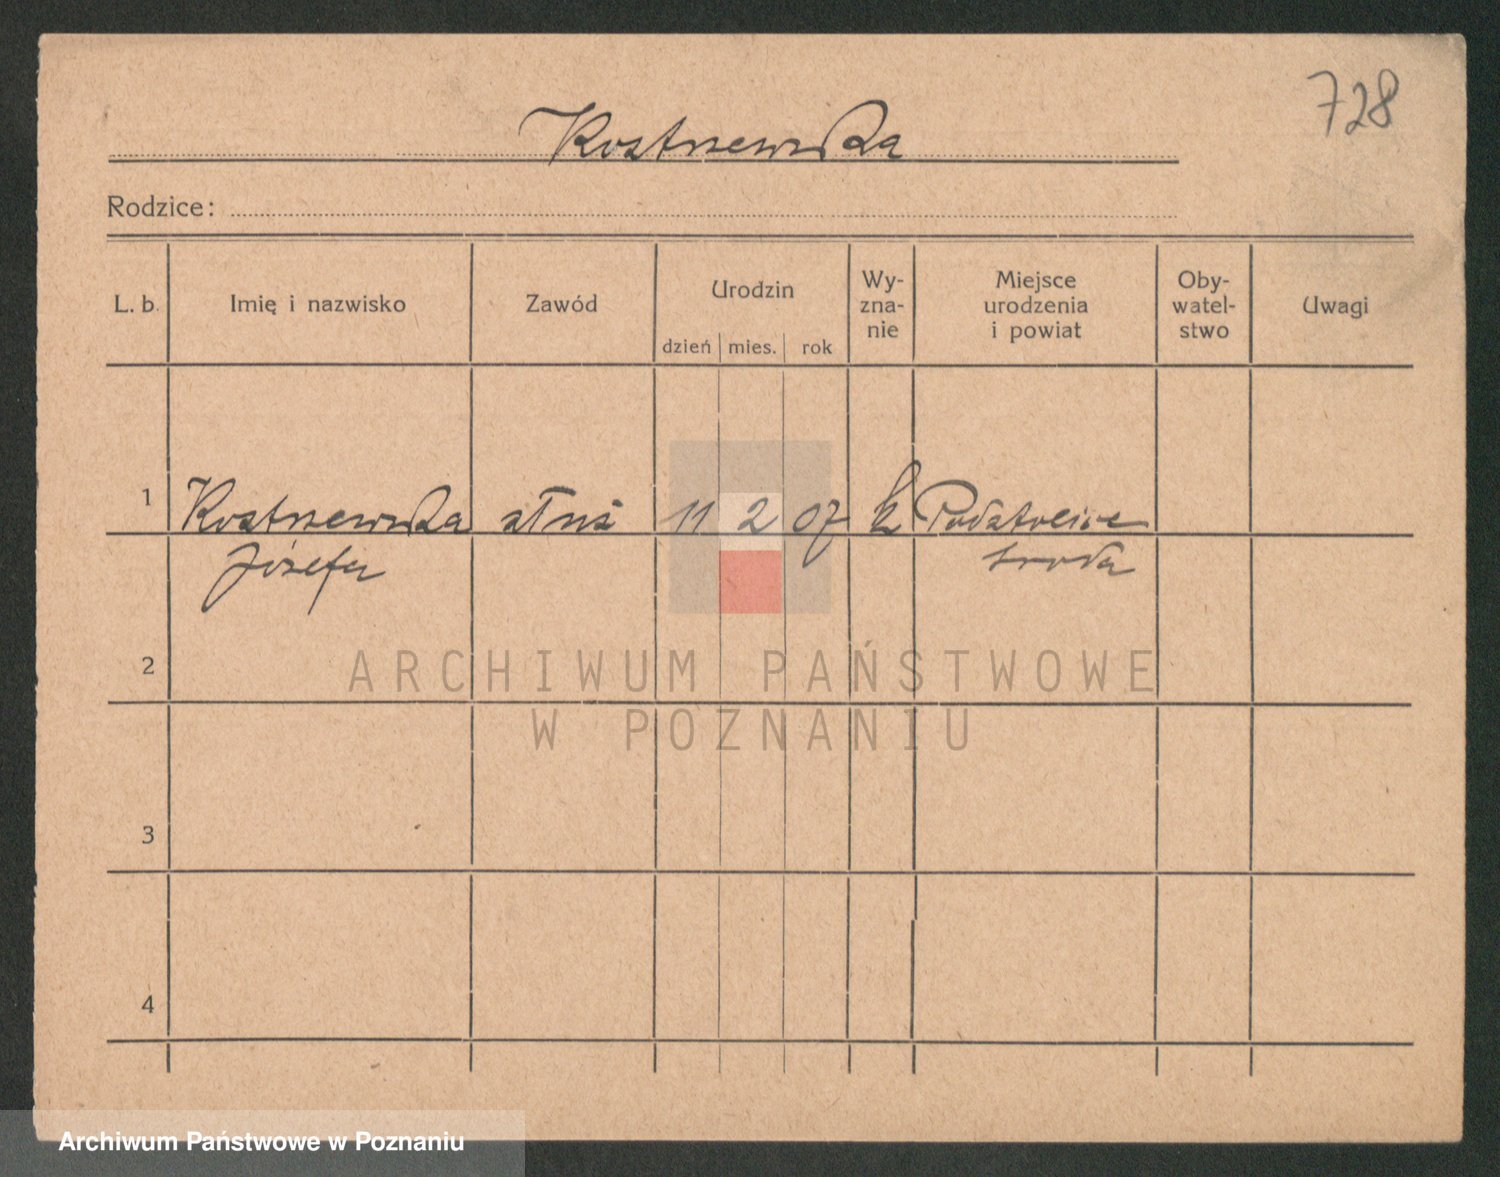 728
Kostrzewska
Rodzice:
L. b. Imię i nazwisko Zawód Urodzin Wy- Miejsce Oby- Uwagi
zna- urodzenia watel-
nie i powiat stwo
dzień mies. rok
1 Kostrzewska służ 11 2 07 k
Józefa Środa
2
3
4
ARCHIWUM PAŃSTWOWE
W POZNANIU
Archiwum Państwowe w Poznaniu